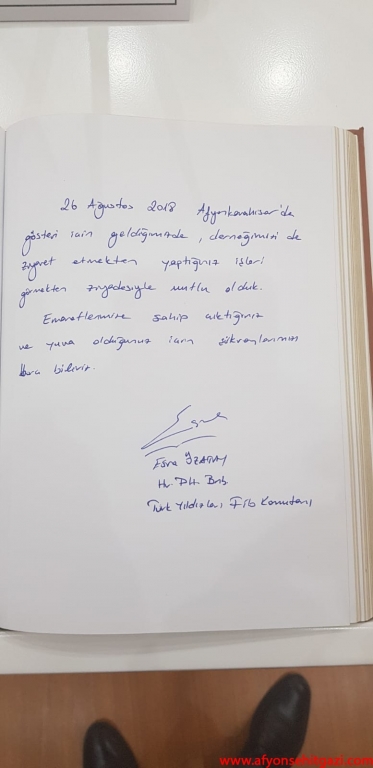 26 Ağustos 2018 Afyonkarahisar'da
gösteri için geldiğimizde, derneğimizi de
ziyaret etmekten yaptığınız işleri
görmekten ziyadesiyle mutlu olduk.
Emanetlerimize sahip çıktığınız
ve yuva olduğunuz için şükranlarımızı
bildiririz.
Esra ÖZATAY
Hv. Plt. Bnb.
Türk Yıldızları Filo Komutanı
www.afyonsehitgazi.com